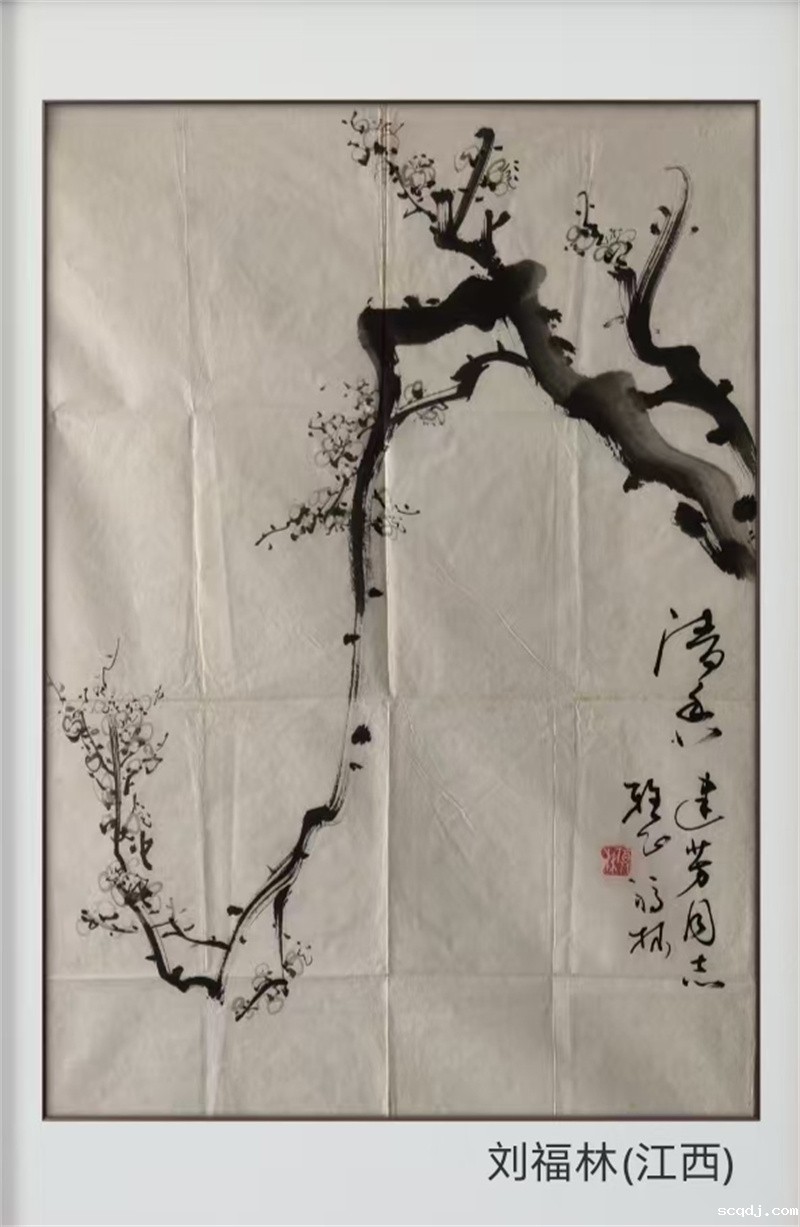 清香
建芳同志
雅正 福林
刘福林(江西)
scqdj.com